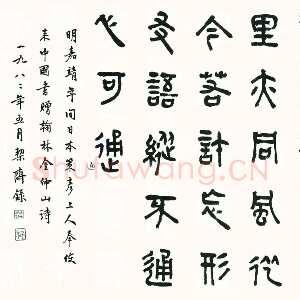 里亦同風從
今若許忘形
友語縱不通
心可通
明嘉靖年間日本策彥上人奉使
來中國書贈翰林金仲山詩
一九八二年五月絜齋錄
Shufawang.CN